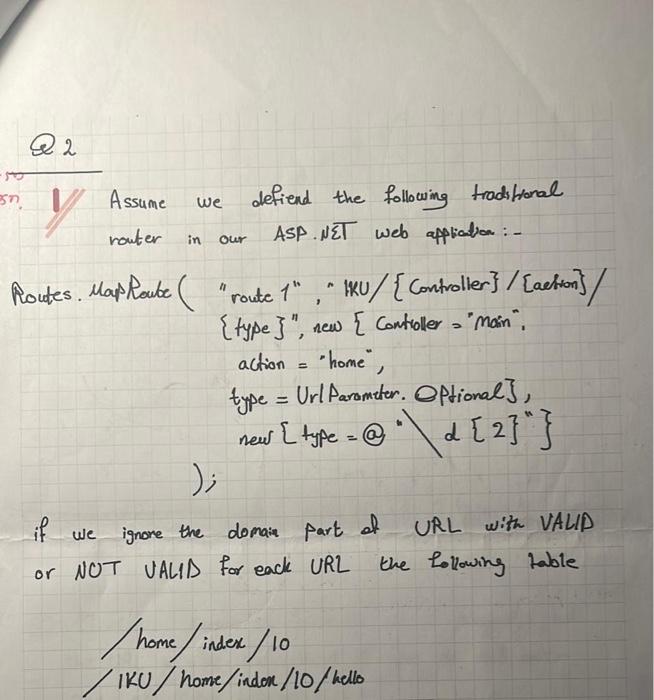 Q2
1 Assume we defiend the following traditional
router in our ASP.NET web application :-
Routes.MapRoute( "route 1", "IKU/{Controller}/{action}/
{type}", new { Controller = "Main",
action = "home",
type = UrlParameter.Optional},
new { type = @"\d{2}"}
);
if we ignore the domain part of URL with VALID
or NOT VALID for each URL the following table
/home/index/10
/IKU/home/index/10/hello